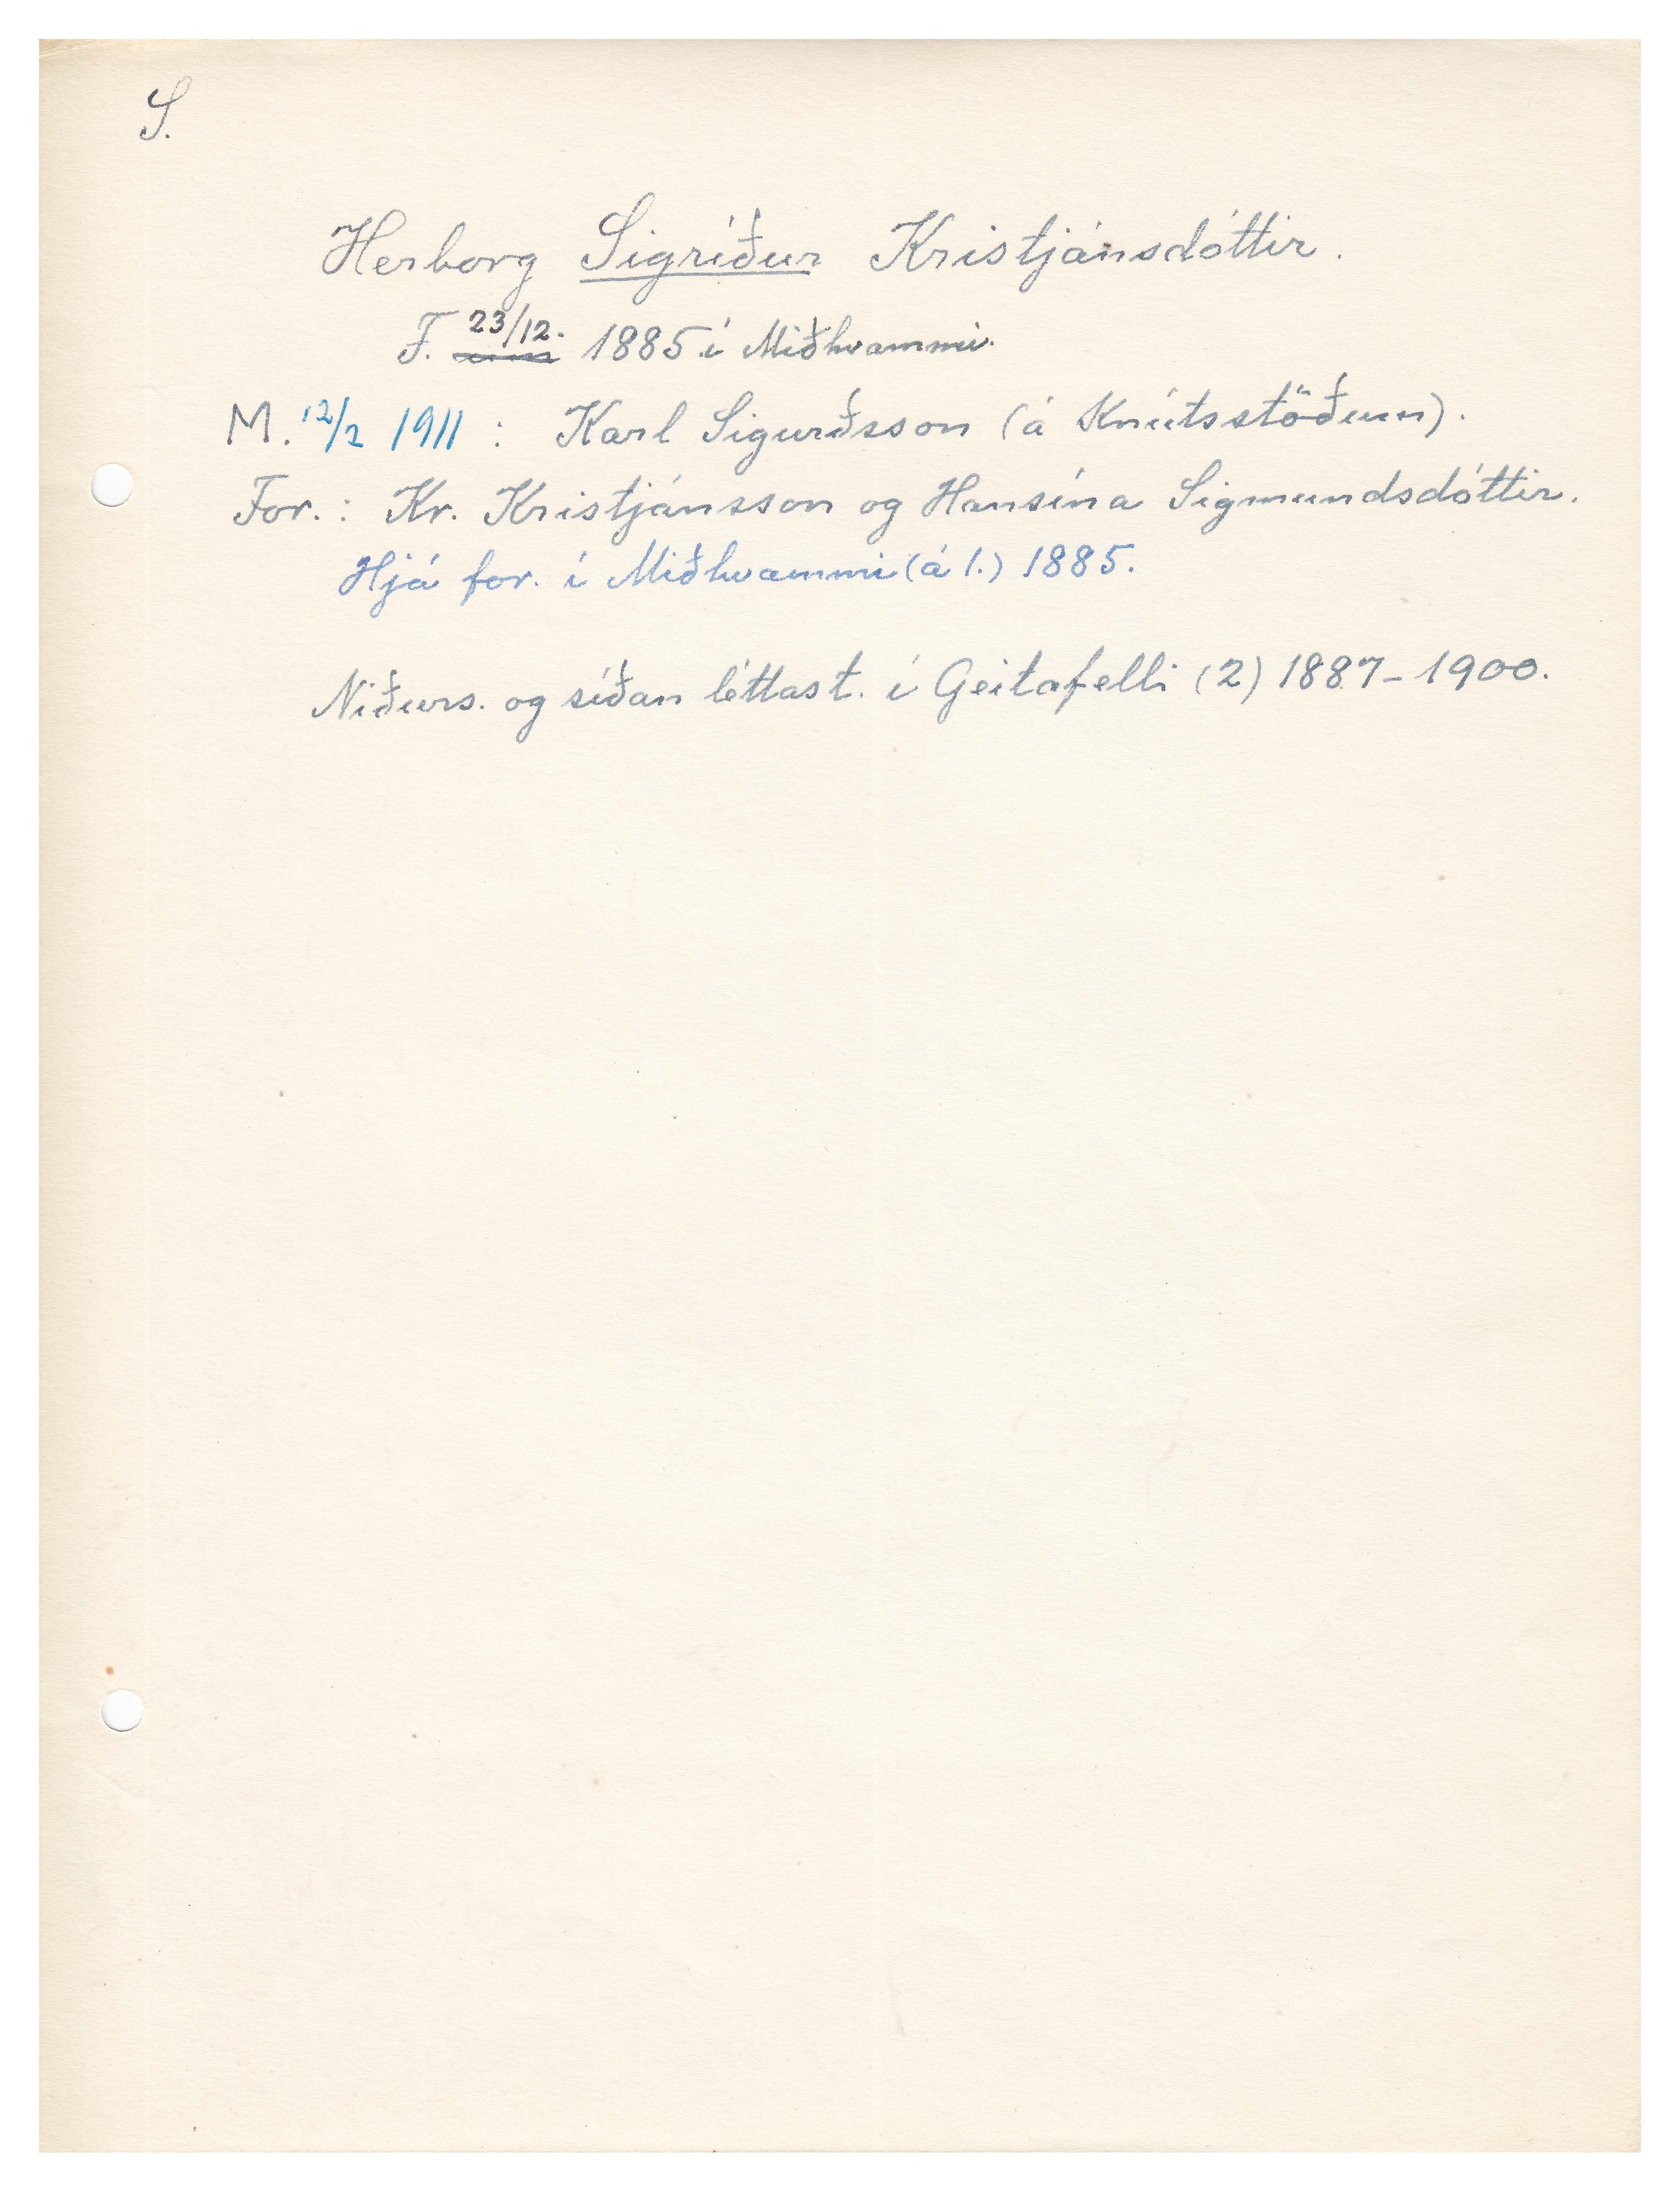 S.
Herborg Sigríður Kristjánsdóttir.
F. 23/12. 1885 í Miðhvammi.
M. 12/2 1911 : Karl Sigurðsson (á Knútsstöðum).
For.: Kr. Kristjánsson og Hansína Sigmundsdóttir.
Hjá for. í Miðhvammi (á 1.) 1885.
Niðurs. og síðan léttast. í Geitafelli (2) 1887-1900.